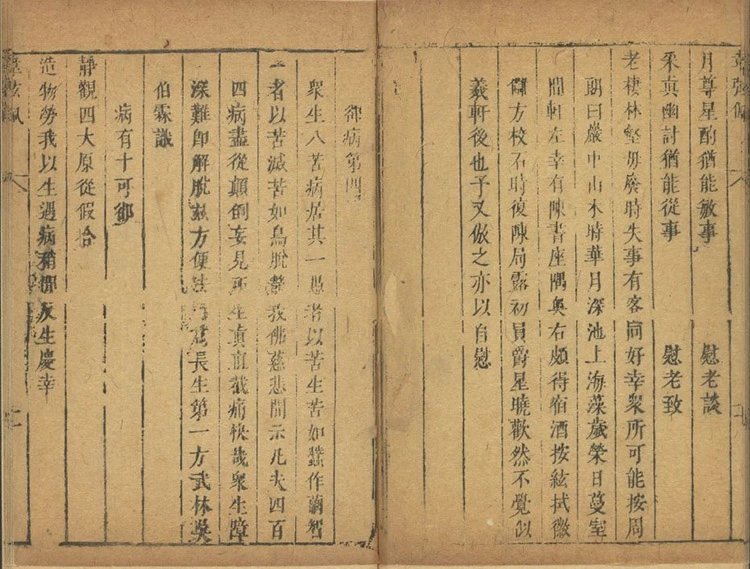 月尊星酌猶能敏事　慰老談
采真幽討猶能從事　慰老致
老棲林壑毋廢時失事有客同好幸衆所可能按周
朗曰巖中山木時華月深池上海藻歲榮日蔓室
間軒左幸有陳書座隅奧右頗得宿酒按絃拭徽
方校石時復陳局露初員爵星曉歡然不覺似
羲軒後也予又倣之亦以自慰
卻病第四
衆生八苦病居其一愚者以苦生苦如蠶作繭智
者以苦滅苦如鳥脫我佛慈悲開示凡夫四百
四病盡從顛倒妄見所生眞直截痛快哉衆生障
深難卽解脫茲方便法門爲長生第一方武林吳
伯霖識
病有十可卻
靜觀四大原從假合
造物勞我以生遇病稍閒反生慶幸